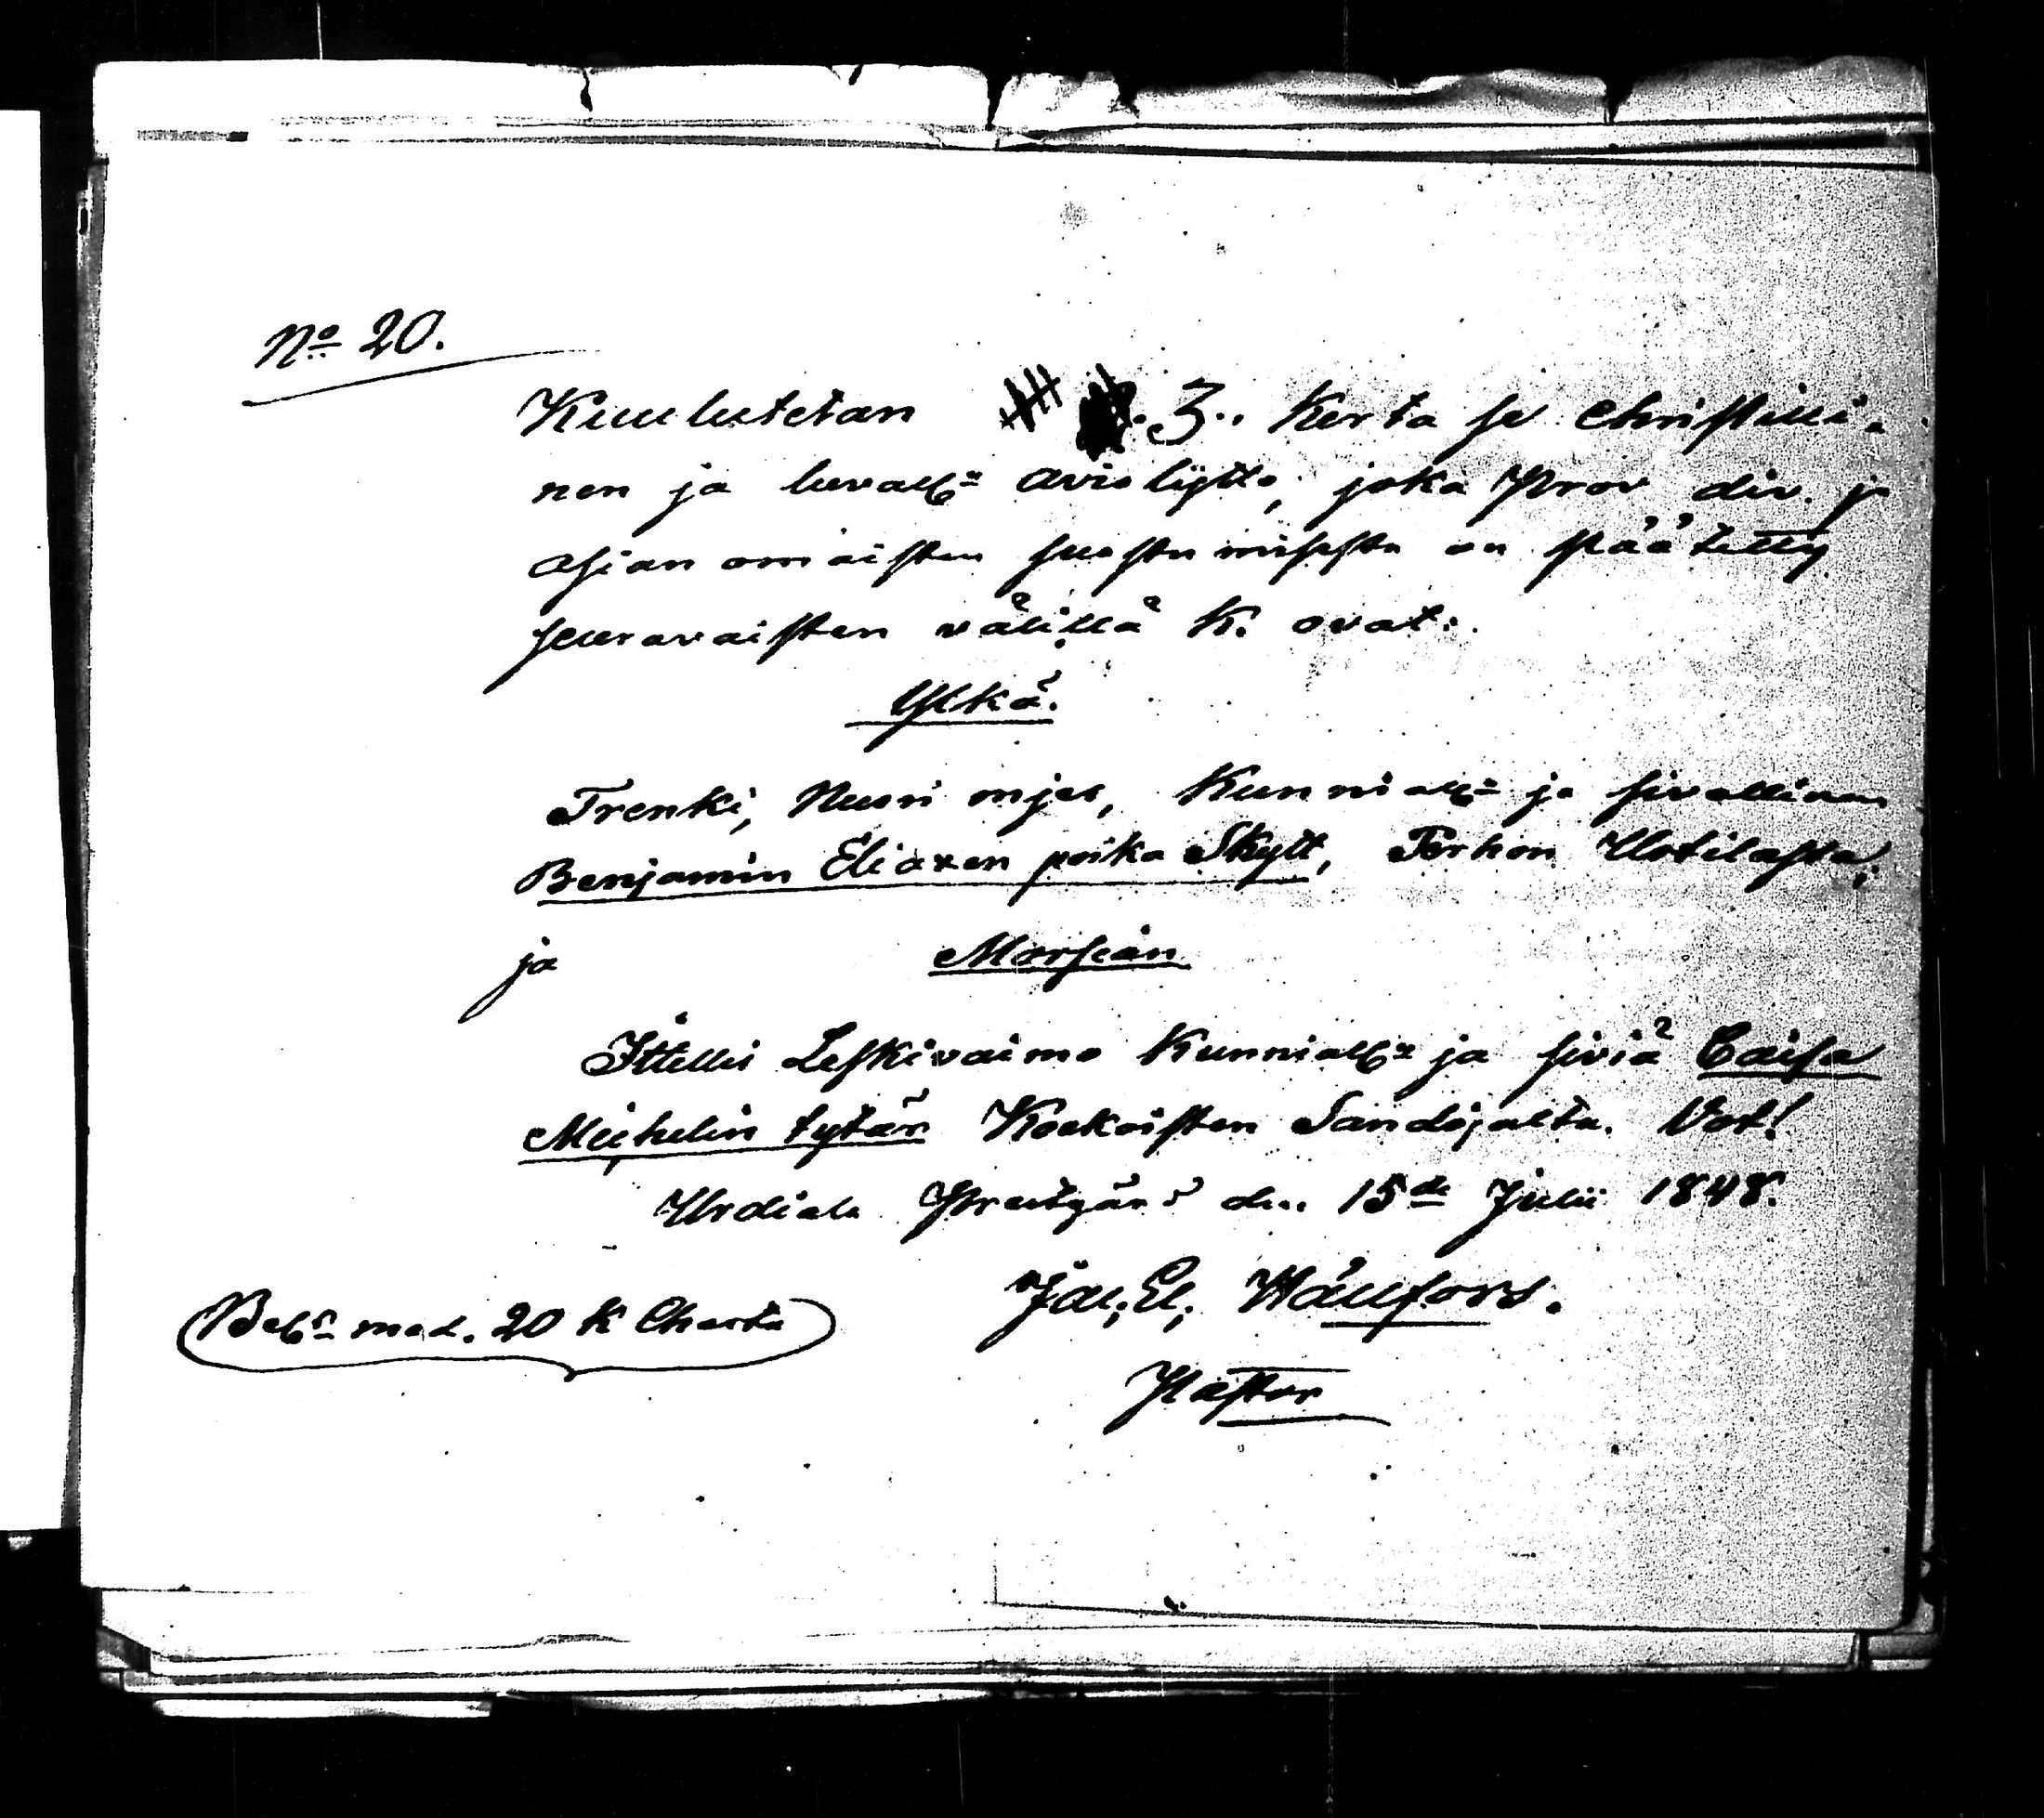 No 20.
Kuulutetan 3. Kerta se christilli-
nen ja luvalln avioliytto, joka Prov div. ja
asian omaisten suostumisesta on päätetty
seuravaisten välillä k. ovat:
Ylkä.
Trenki, Nuori mjes, Kunnialln ja sivallinen
Benjamin Eliaxen poika Skytt, Terhon Uotilasta,
ja Morsian
Ittellis Leskivaimo Kunnialln ja siviä Caisa
Michelin tytär Koekoisten Sandojalta. Vot!
Urdiala Prestgård den 15de Julii 1848.
Jac. El. Hällfors.
Beln med. 20 K Charta
Pastor